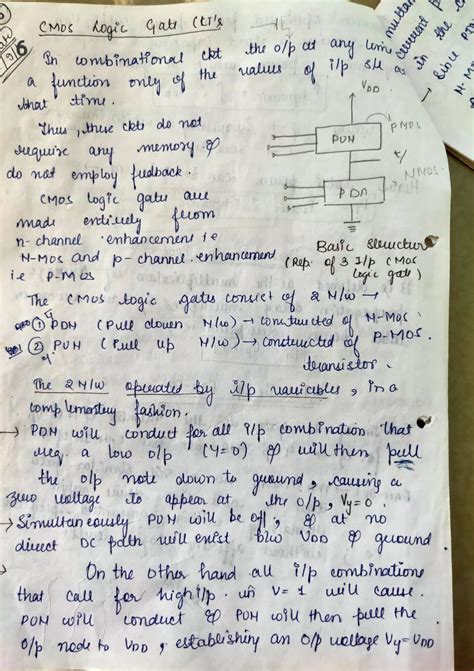 CMOS Logic Gate Ckt's
In combinational ckt the o/p at any time is
a function only of the values of i/p s/l at
that time.
Thus, these ckts do not
require any memory &
do not employ fedback.
CMOS logic gates are
made entirely from
n-channel enhancement i.e
N-MOS and p-channel enhancement
i.e P-MOS
VDD
PUN
PMOS
PDN
NMOS
Basic Structure
(Rep. of 3 I/p CMOS
logic gate)
The CMOS logic gates consist of 2 N/w →
① PDN (Pull down N/w) → constructed of N-MOS
② PUN (Pull up N/w) → constructed of P-MOS.
transistor.
The 2 N/w operated by i/p variables, in a
complemestry fashion.
→ PDN will conduct for all i/p combination that
req. a low o/p (Y=0) & will then pull
the o/p node down to ground, causing a
zero voltage to appear at the o/p, Vy=0.
→ Simultaneously PUN will be off, & at no
direct DC path will exist b/w VDD & ground
On the other hand all i/p combinations
that call for high i/p. V=1 will cause.
PUN will conduct & PUN will then pull the
o/p node to VDD, establishing an o/p voltage Vy=VDD